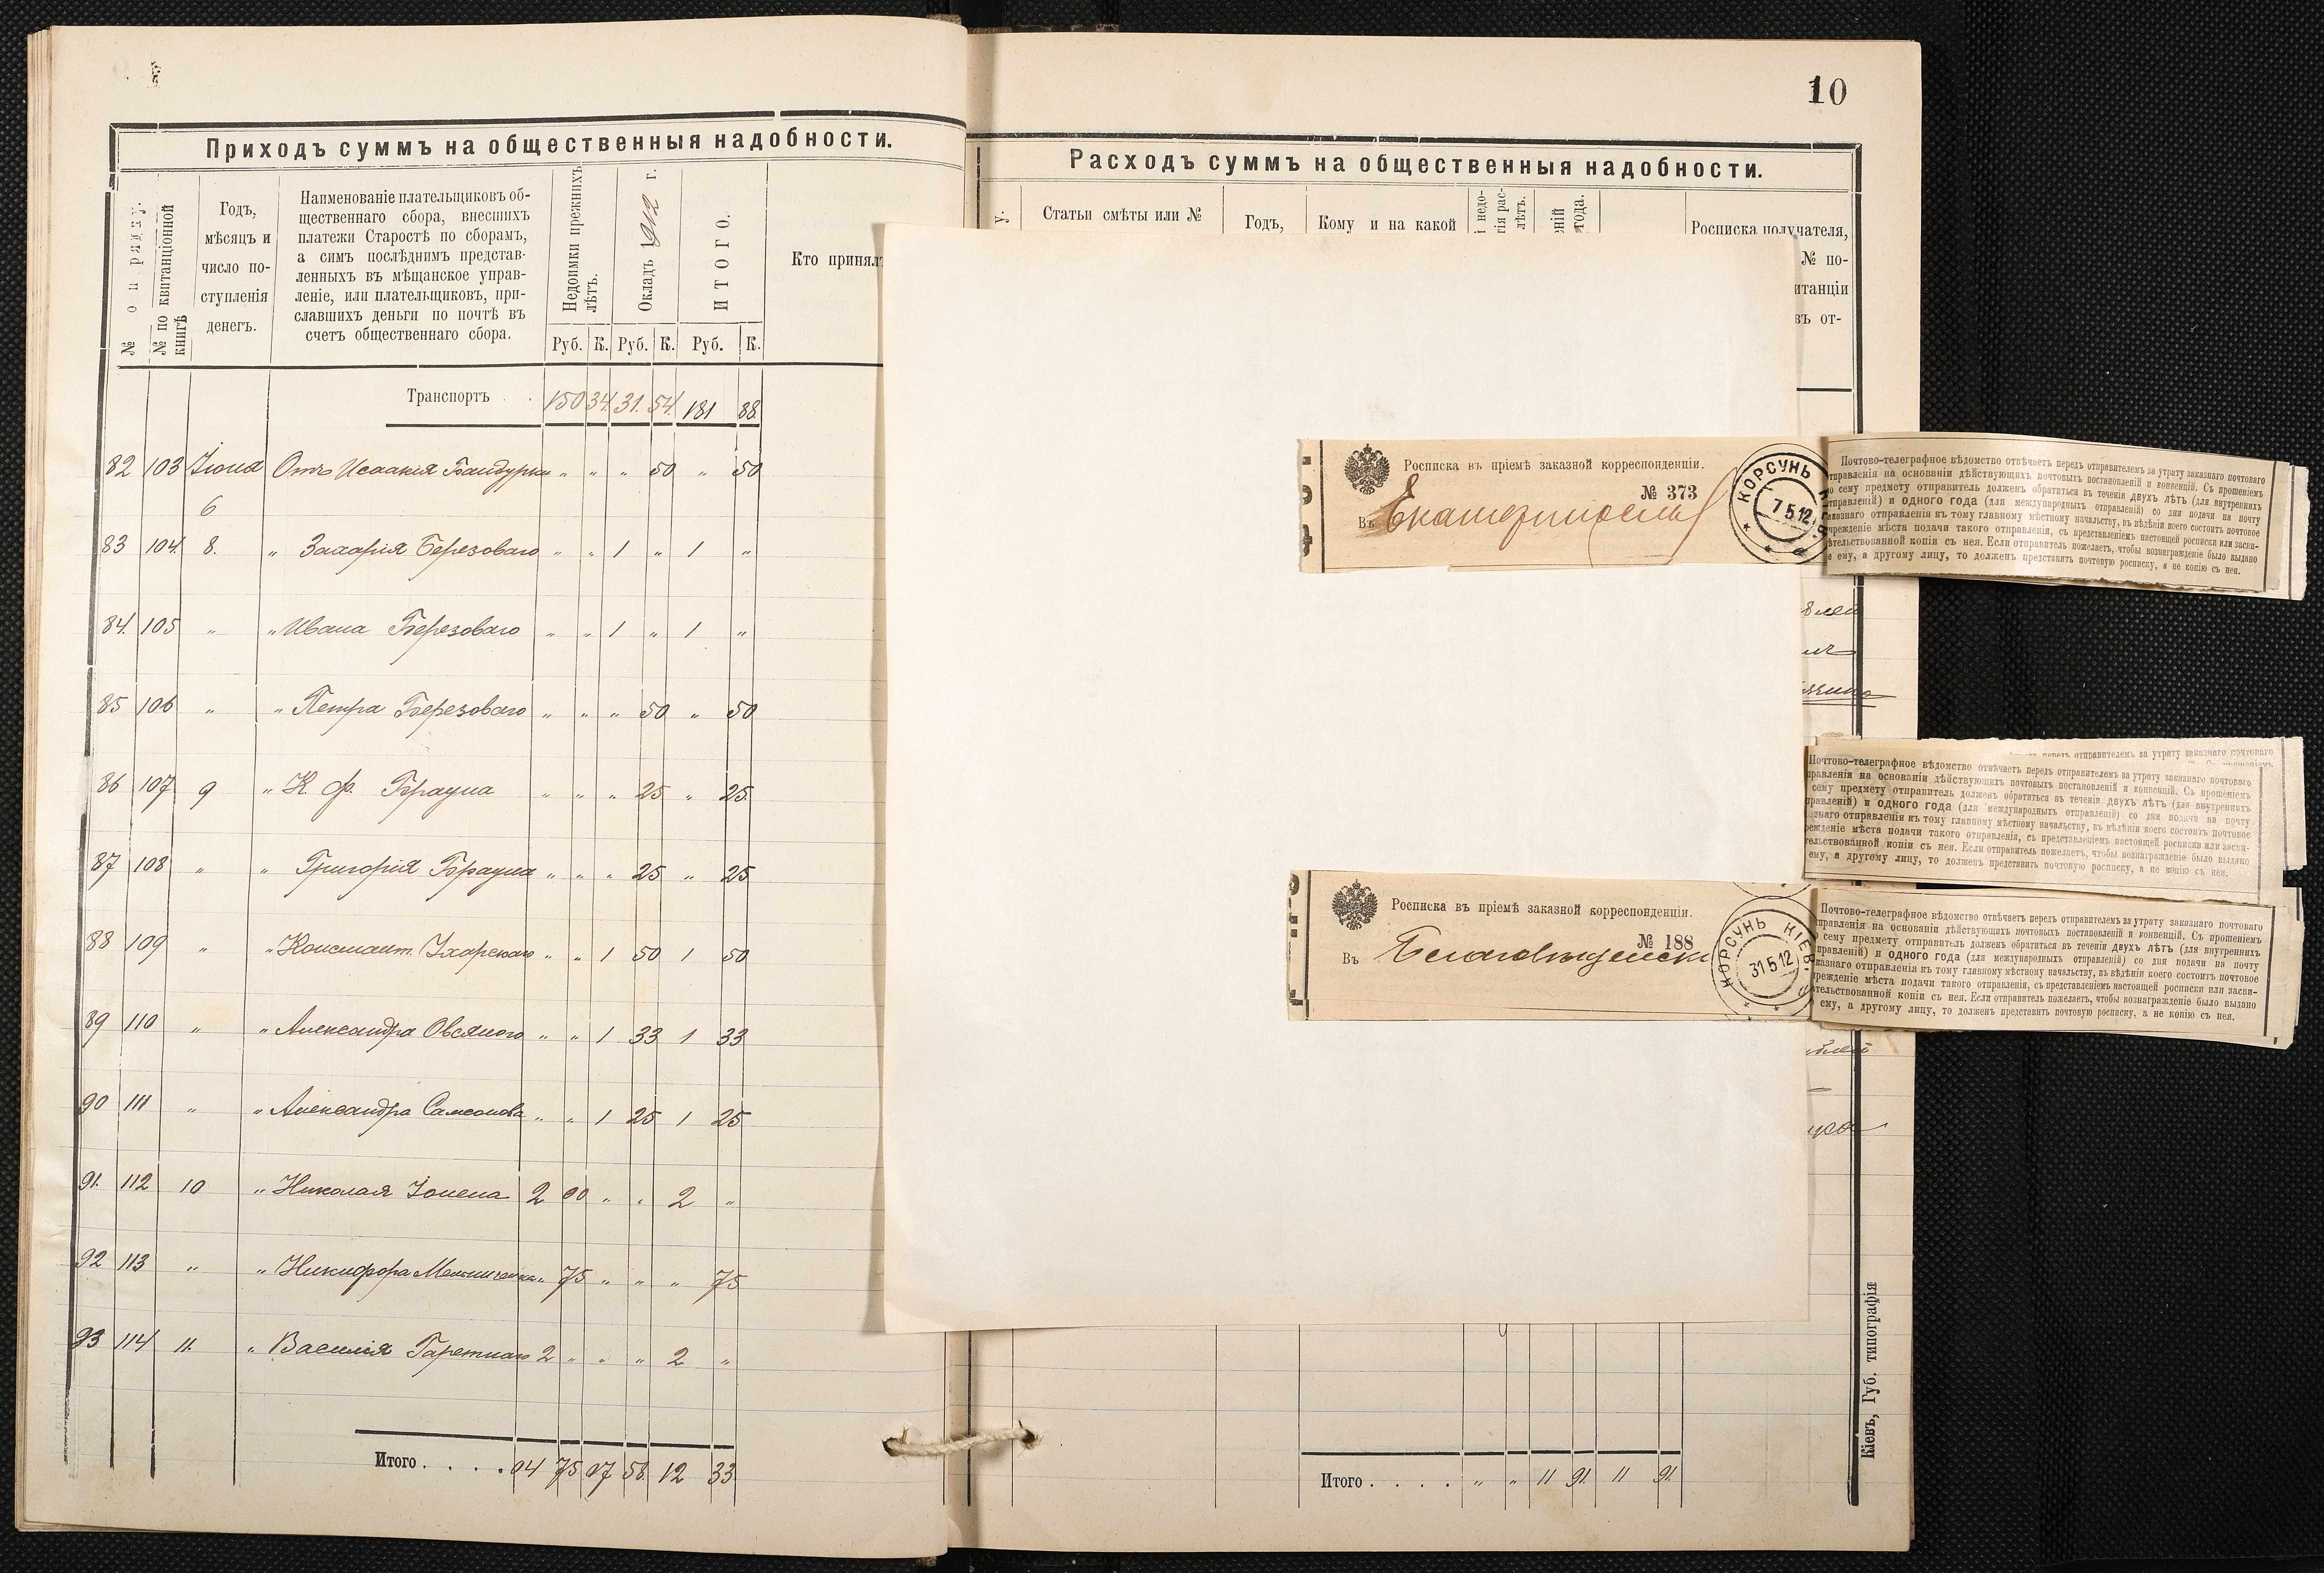 10
Приходъ суммъ на общественныя надобности.
№ по ряду.
№ по квитанціонной книгѣ
Годъ,
мѣсяцъ и
число по-
ступленія
денегъ.
Наименованіе плательщиковъ об-
щественнаго сбора, внесшихъ
платежи Старостѣ по сборамъ,
а симъ послѣднимъ представ-
ленныхъ въ мѣщанское управ-
леніе, или плательщиковъ, при-
славшихъ деньги по почтѣ въ
счетъ общественнаго сбора.
Недоимки прежнихъ лѣтъ.
Окладъ 1912 г.
ИТОГО.
Кто принялъ
Руб. К. Руб. К. Руб. К.
Транспортъ . . 150 34. 31. 54. 181 88.
82 103 Іюня Отъ Исаакія Бандурки „ „ „ 50 „ 50
6
83 104. 8. „ Захарія Березоваго „ „ 1 „ 1 „
84. 105 „ „ Ивана Березоваго „ „ 1 „ 1 „
85 106 „ „ Петра Березоваго „ „ „ 50 „ 50
86 107 9 „ К. Ф. Брауна „ „ „ 25 „ 25.
87 108 „ „ Григорія Брауна „ „ „ 25 „ 25
88 109 „ „ Констант. „ „ 1 50 1 50
89 110 „ „ Александра Овсяного „ „ 1 33 1 33
90 111 „ „ Александра Самсонова „ „ 1 25 1 25
91. 112 10 „ Николая 2 00 „ „ 2 „
92 113 „ „ Никифора Мельниченка „ 75 „ „ „ 75
93 114 11. „ Василія 2 „ „ „ 2 „
Итого . . . . 04 75 07 58. 12 33
Расходъ суммъ на общественныя надобности.
у.
Статьи смѣты или №
Годъ,
Кому и на какой
недо-
ія рас-
лѣтъ.
еній
года.
Росписка получателя,
№ по-
итанціи
въ от-
Росписка въ пріемѣ заказной корреспонденціи.
№ 373
Въ Екатеринослав
КОРСУНЬ КІЕВ.
7 5 12
Почтово-телеграфное вѣдомство отвѣчаетъ передъ отправителемъ за утрату заказнаго почтоваго
тправленія на основаніи дѣйствующихъ почтовыхъ постановленій и конвенцій. Съ прошеніемъ
о сему предмету отправитель долженъ обратиться въ теченіи двухъ лѣтъ (для внутреннихъ
тправленій) и одного года (для международныхъ отправленій) со дня подачи на почту
аказнаго отправленія къ тому главному мѣстному начальству, въ вѣдѣніи коего состоитъ почтовое
чрежденіе мѣста подачи такого отправленія, съ представленіемъ настоящей росписки или засви-
ѣтельствованной копіи съ нея. Если отправитель пожелаетъ, чтобы вознагражденіе было выдано
е ему, а другому лицу, то долженъ представить почтовую росписку, а не копію съ нея.
передъ отправителемъ за утрату заказнаго почтоваго
Почтово-телеграфное вѣдомство отвѣчаетъ передъ отправителемъ за утрату заказнаго почтоваго
правленія на основаніи дѣйствующихъ почтовыхъ постановленій и конвенцій. Съ прошеніемъ
сему предмету отправитель долженъ обратиться въ теченіи двухъ лѣтъ (для внутреннихъ
правленій) и одного года (для международныхъ отправленій) со дня подачи на почту
азнаго отправленія къ тому главному мѣстному начальству, въ вѣдѣніи коего состоитъ почтовое
режденіе мѣста подачи такого отправленія, съ представленіемъ настоящей росписки или засви-
тельствованной копіи съ нея. Если отправитель пожелаетъ, чтобы вознагражденіе было выдано
ему, а другому лицу, то долженъ представить почтовую росписку, а не копію съ нея.
Росписка въ пріемѣ заказной корреспонденціи.
№ 188
Въ Благовѣщенск
КОРСУНЬ КІЕВ.
31 5 12
Почтово-телеграфное вѣдомство отвѣчаетъ передъ отправителемъ за утрату заказнаго почтоваго
правленія на основаніи дѣйствующихъ почтовыхъ постановленій и конвенцій. Съ прошеніемъ
сему предмету отправитель долженъ обратиться въ теченіи двухъ лѣтъ (для внутреннихъ
правленій) и одного года (для международныхъ отправленій) со дня подачи на почту
казнаго отправленія къ тому главному мѣстному начальству, въ вѣдѣніи коего состоитъ почтовое
режденіе мѣста подачи такого отправленія, съ представленіемъ настоящей росписки или засви-
тельствованной копіи съ нея. Если отправитель пожелаетъ, чтобы вознагражденіе было выдано
ему, а другому лицу, то долженъ представить почтовую росписку, а не копію съ нея.
Итого . . . . „ „ 11 91. 11 91.
Кіевъ, Губ. типографія